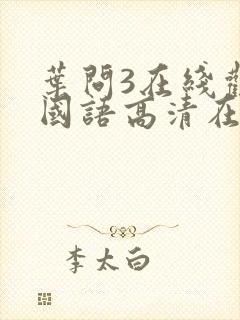 葉問3在綫
國語高清在
李太白